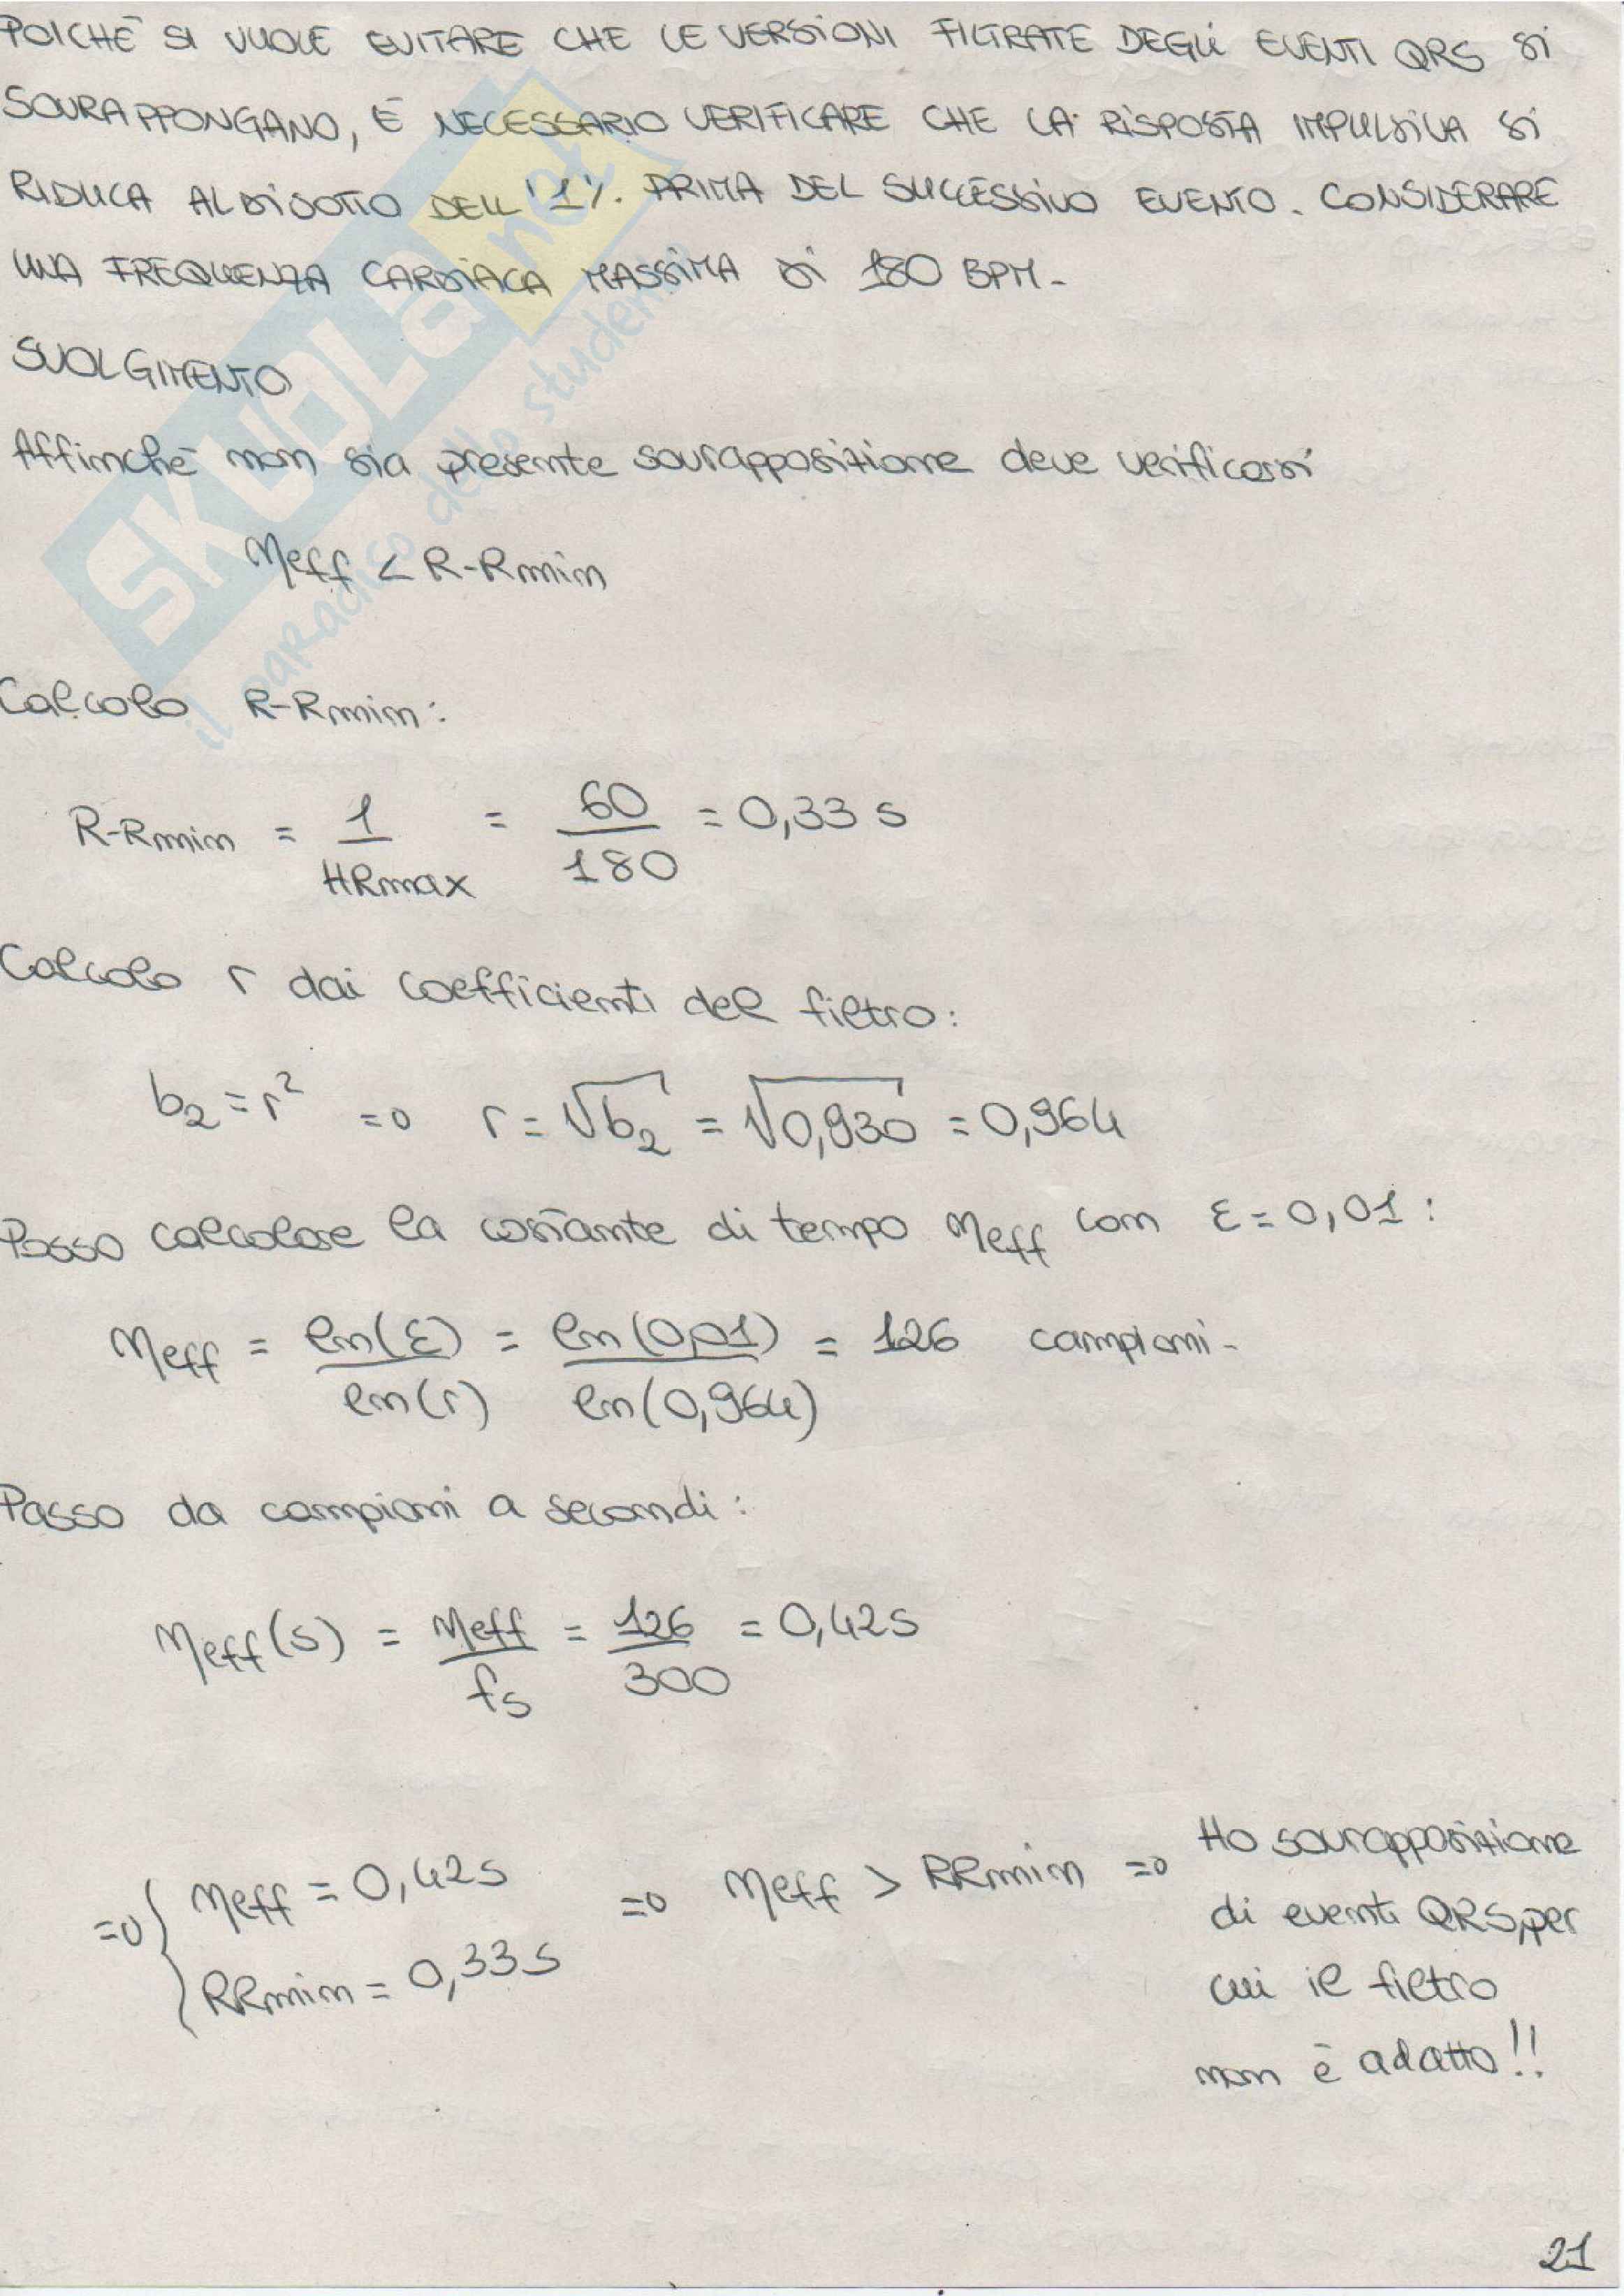 POICHÈ SI VUOLE EVITARE CHE LE VERSIONI FILTRATE DEGLI EVENTI QRS SI
SOVRAPPONGANO, È NECESSARIO VERIFICARE CHE LA RISPOSTA IMPULSIVA SI
RIDUCA AL DISOTTO DELL'1%. PRIMA DEL SUCCESSIVO EVENTO. CONSIDERARE
UNA FREQUENZA CARDIACA MASSIMA DI 180 BPM.
SVOLGIMENTO
Affinchè non sia presente sovrapposizione deve verificarsi
Neff < R-Rmin
Calcolo R-Rmin:
R-Rmin = 1/HRmax = 60/180 = 0,33 s
Calcolo r dai coefficienti del filtro:
b2 = r² => r = √b2 = √0,930 = 0,964
Posso calcolare la costante di tempo Neff con ε = 0,01:
Neff = ln(ε)/ln(r) = ln(0,01)/ln(0,964) = 126 campioni.
Passo da campioni a secondi:
Neff(s) = Neff/fs = 126/300 = 0,42s
=> { Neff = 0,42s => Neff > RRmin => Ho sovrapposizione
RRmin = 0,33s di eventi QRS, per
cui il filtro
non è adatto!!
21
SKUOLA.net
il paradiso dello studente